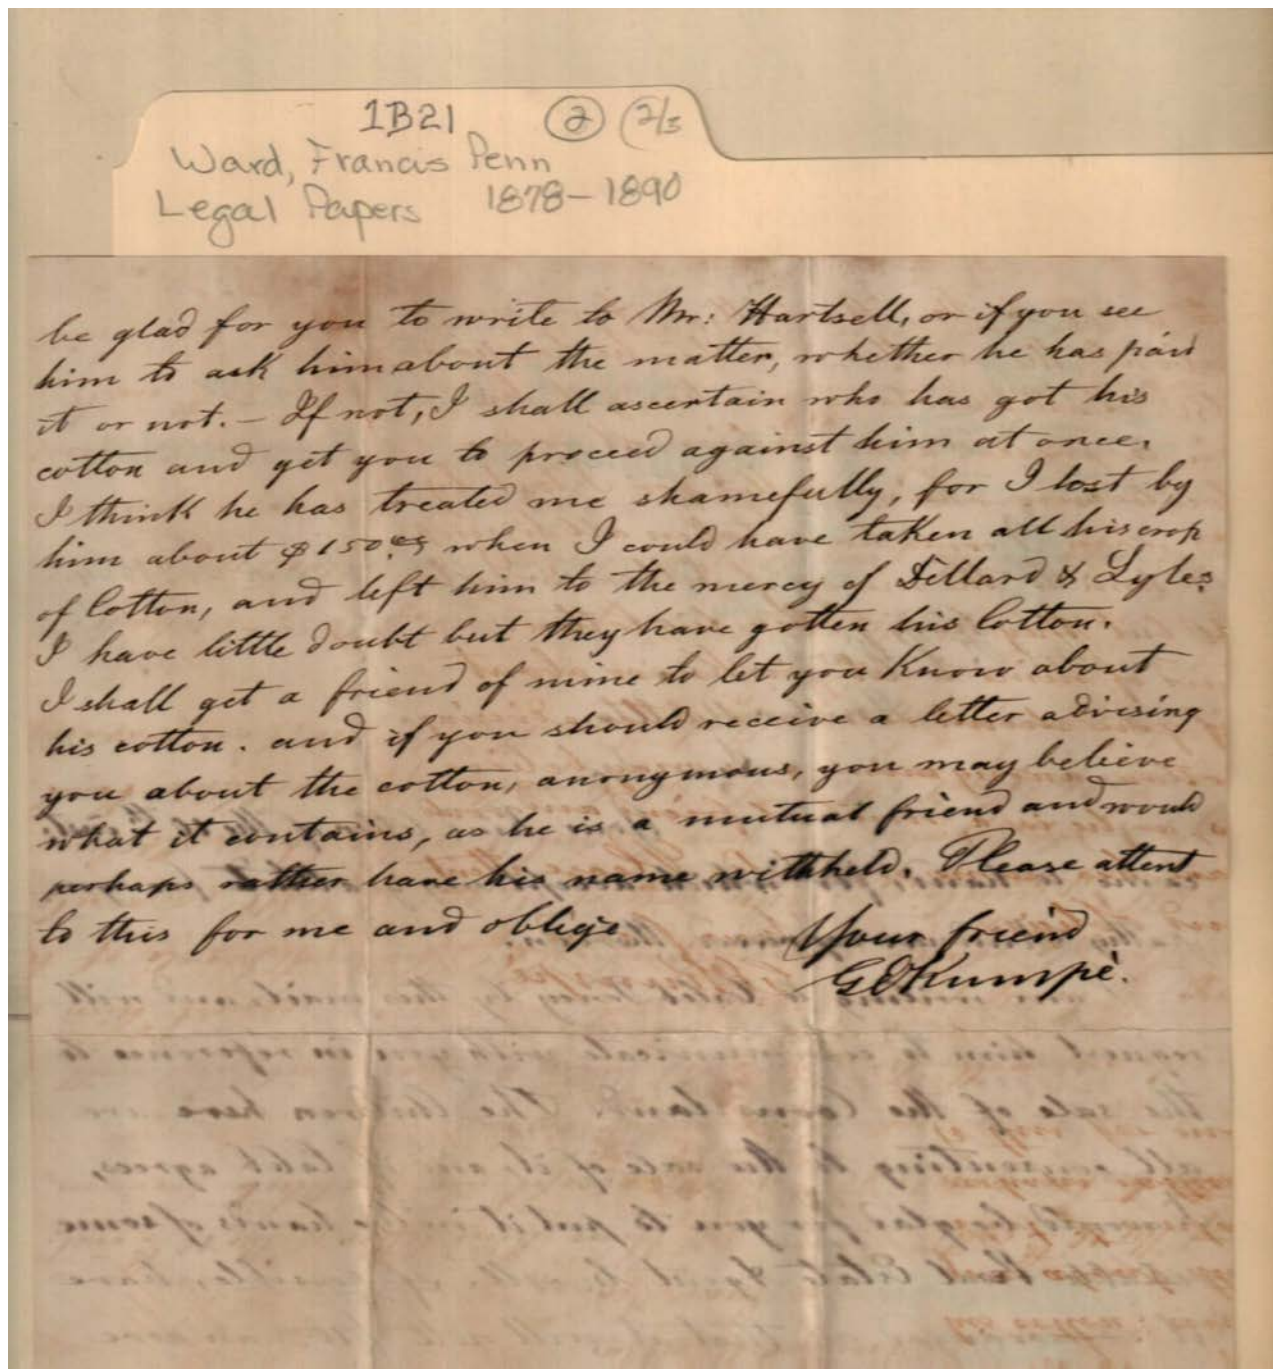 1B21 2 (2/3
Ward, Francis Penn
Legal Papers 1878-1890
be glad for you to write to Mr: Hartsell, or if you see
him to ask him about the matter, whether he has paid
it or not. - If not, I shall ascertain who has got his
cotton and get you to proceed against him at once.
I think he has treated me shamefully, for I lost by
him about $150 when I could have taken all his crop
of Cotton, and left him to the mercy of Dillard & Lyles.
I have little doubt but they have gotten his Cotton.
I shall get a friend of mine to let you Know about
his cotton. and if you should receive a letter advising
you about the cotton, anonymous, you may believe
what it contains, as he is a mutual friend and would
perhaps rather have his name withheld. Please attend
to this for me and oblige
Your friend
Kumpe.